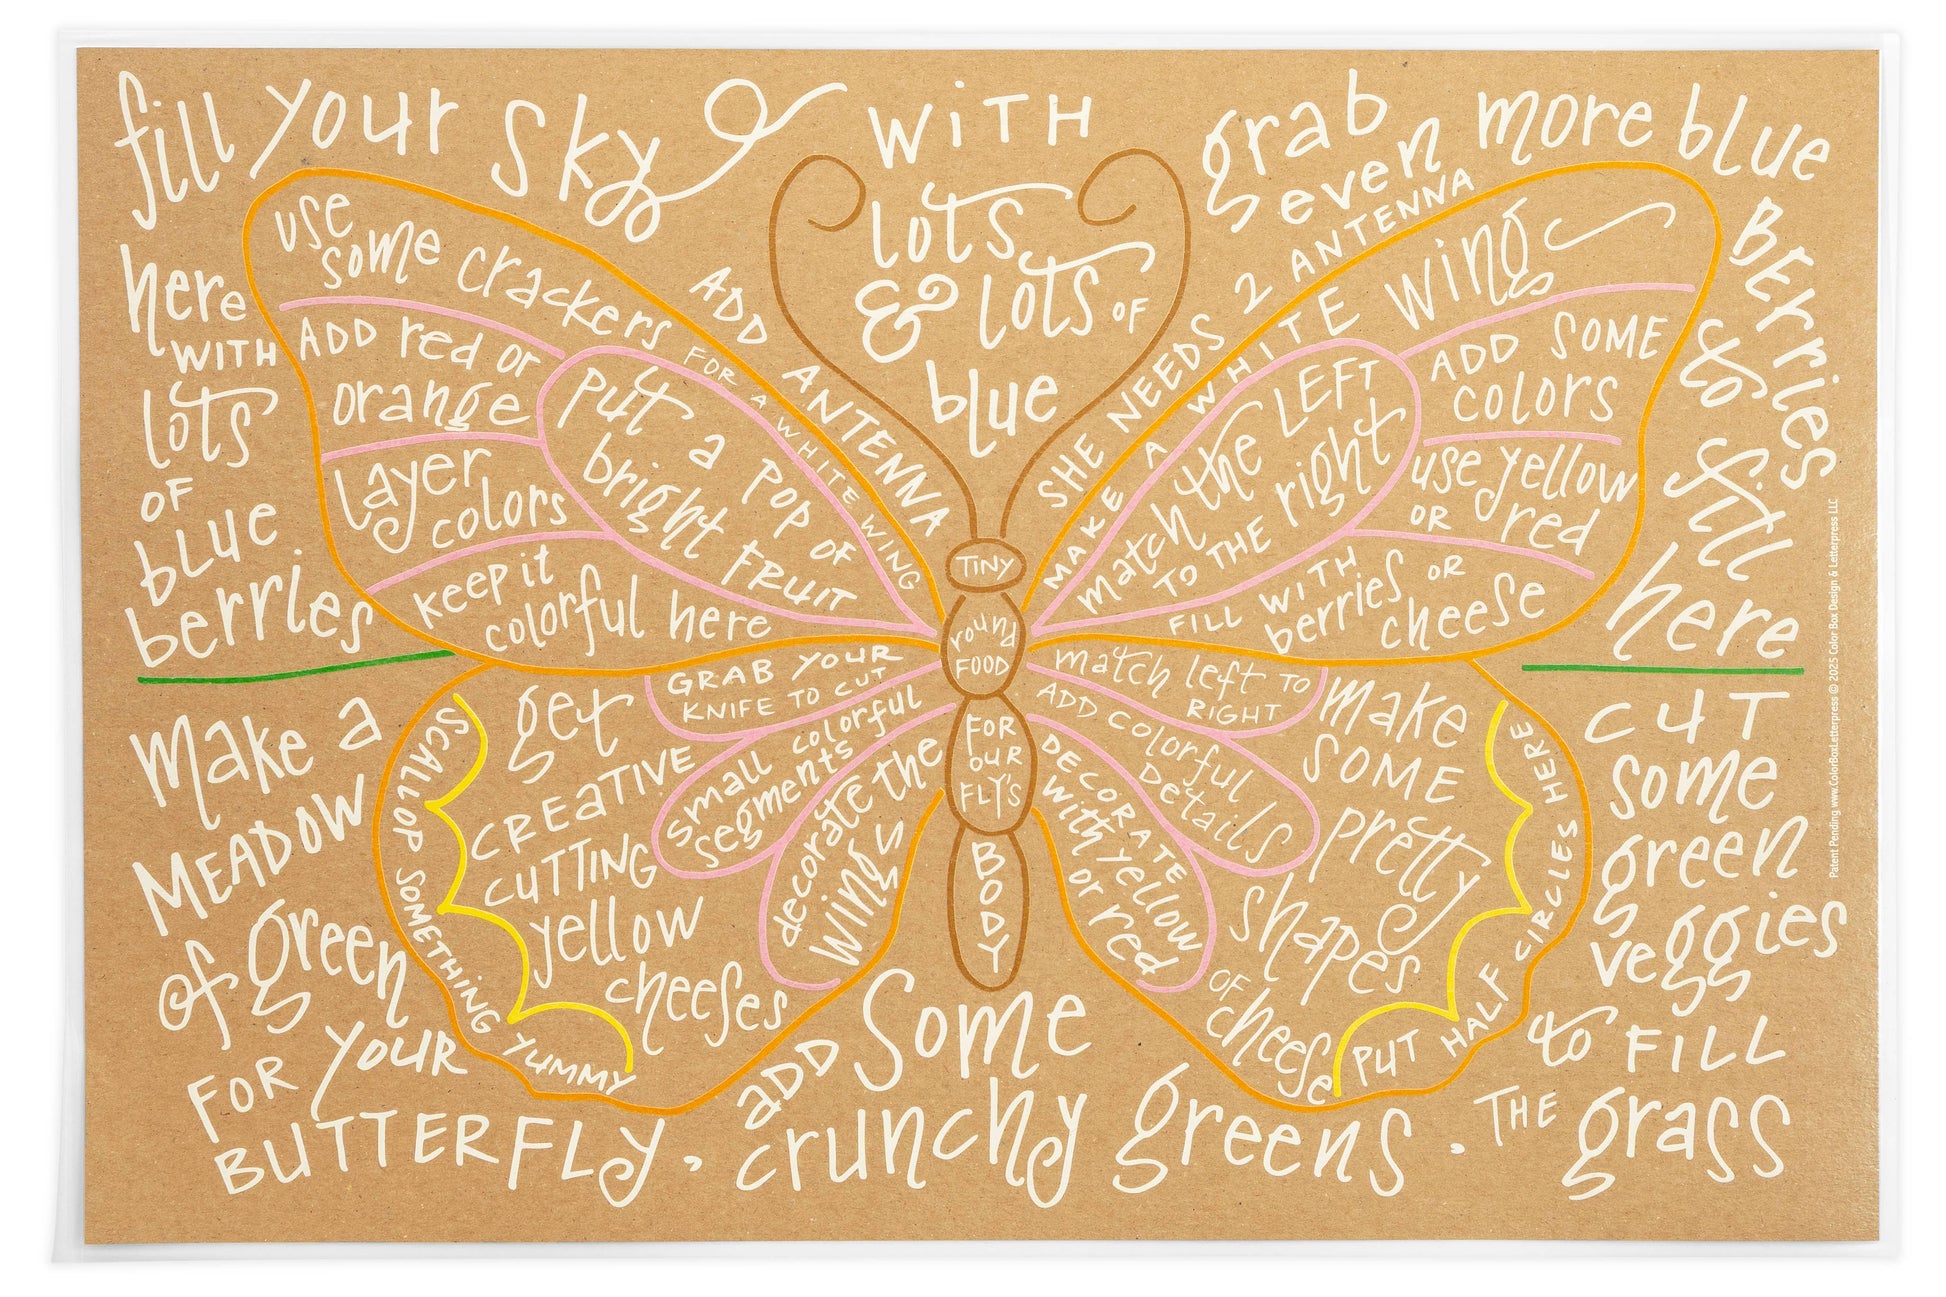 fill your sky
with
lots
& lots of
blue
grab
even more blue
Berries
to
fill
here
here
with
lots
of
blue
berries
use
some crackers
for a white wing
Add red or
orange
Layer
colors
keep it
colorful here
put a pop of
bright fruit
Add Antenna
She needs 2 antenna
make a white wing
match the left
to the right
Add some
colors
use yellow
or red
fill with
berries or
cheese
Tiny
round
food
for
our
fly's
body
Grab your
knife to cut
small colorful
segments
decorate the
wings
get
creative
cutting
yellow
cheeses
Scallop something yummy
match left to
right
Add colorful
details
decorate
with yellow
or red
make
some
pretty
shapes
of
cheese
put half circles here
Make a
meadow
of green
for your
butterfly.
add some
crunchy greens.
cut
some
green
veggies
to fill
the grass
Patent Pending www.ColorBoxLetterpress © 2025 Color Box Design & Letterpress LLC